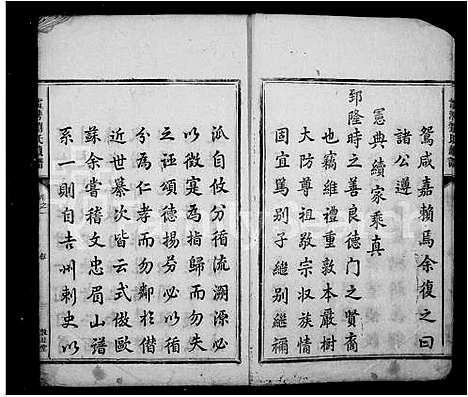 駕咸嘉賴焉余復之曰
諸公遵
憲典續家乘真
郅隆時之善良德門之賢裔
也竊維禮重敦本嚴樹
大防尊祖敬宗収族情
固宜篤别子繼别繼禰
派自攸分循流溯源必
以徵寔為指歸而勿失
之誣頌德揚芬必以循
分為仁孝而勿鄰於僭
近世纂次皆云式倣歐
蘇余嘗稽文忠眉山譜
系一則自吉州刺史以
敦睦堂